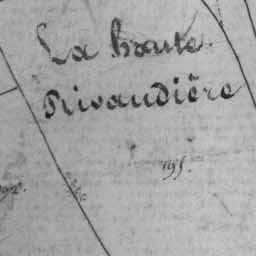 La haute
Rivaudière
195.